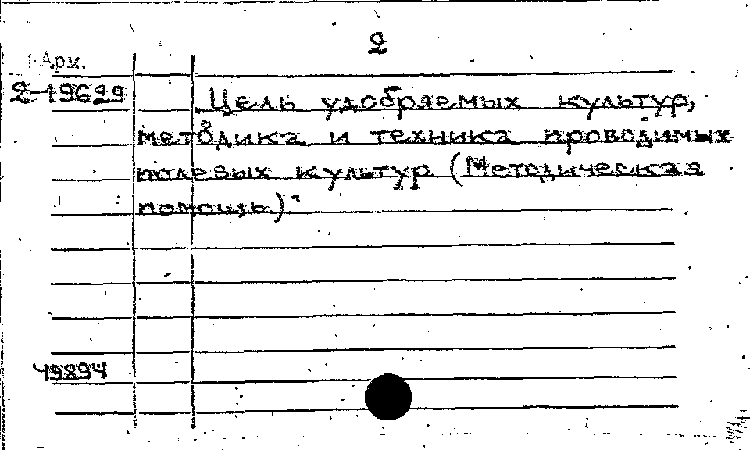 2
Арх.
2-19699
Цель удобряемых культур,
методика и техника проводимых
полевых культур (Методическая
помощь).
49894